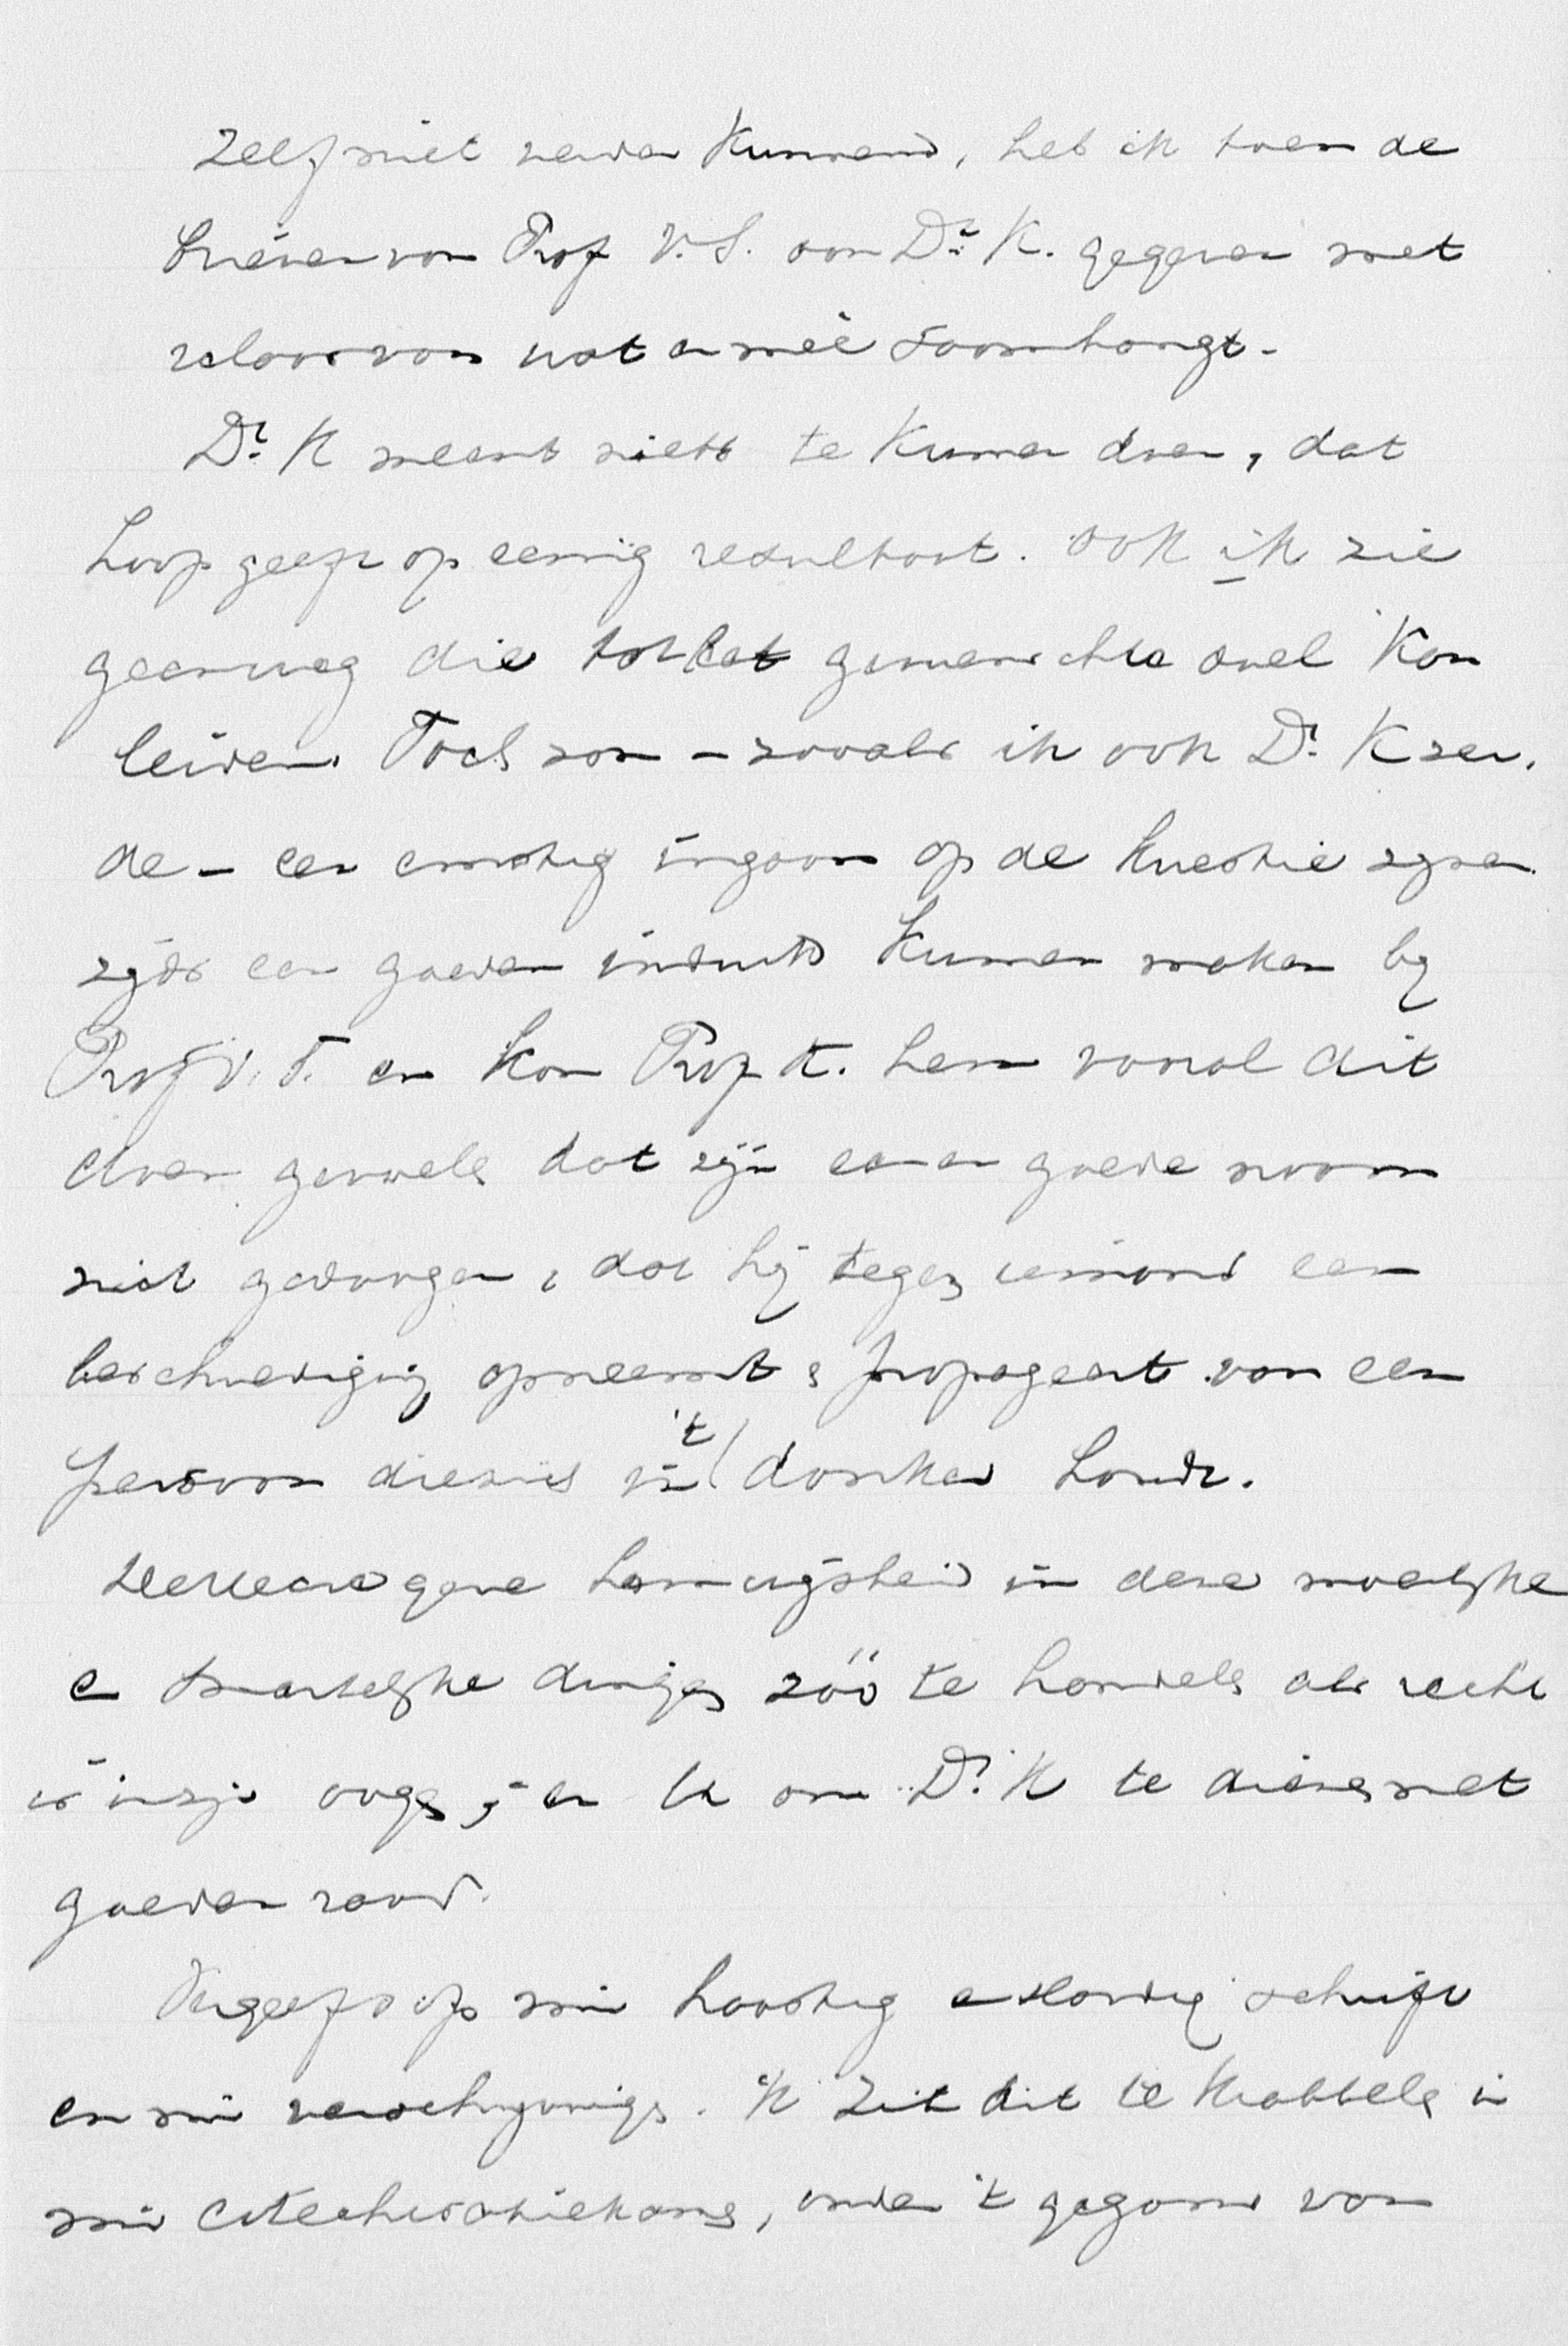 Zelf niet verder kunnend, heb ik toen de
brieven van Prof V.S. aan Dr. K. gegeven met
relaas van wat er mêe saamhangt.
Dr. K meent niets te kunnen doen, dat
hoop geeft op eenig resultaat. Ook ik zie
geen weg die tot het gewenschte doel kan
leiden. Toch zou – zooals ik ook Dr. K zei.
de – een ernstig ingaan op de kwestie zijner
zijds een goeden indruk kunnen maken bij
Prof V.S. en kan Prof K. hem vooral dit
doen gevoelen dat zijn eer en goede naam
niet gedoogen, dat hij tegen iemand een
beschuldiging opneemt & propageert van een
persoon die zich in 't donker houdt.
De Heere geve hem wijsheid in deze moeilijke
en smartelijke dingen zóó te handelen als recht
is in zijn oogen, en U om Dr. K te dienen met
goeden raad.
Vergeef s.v.p. mijn haastig en slordig schrift
en mijn verschrijvingen. Ik zit dit te krabbelen in
mijn catechisatiekamer, onder 't gegons van